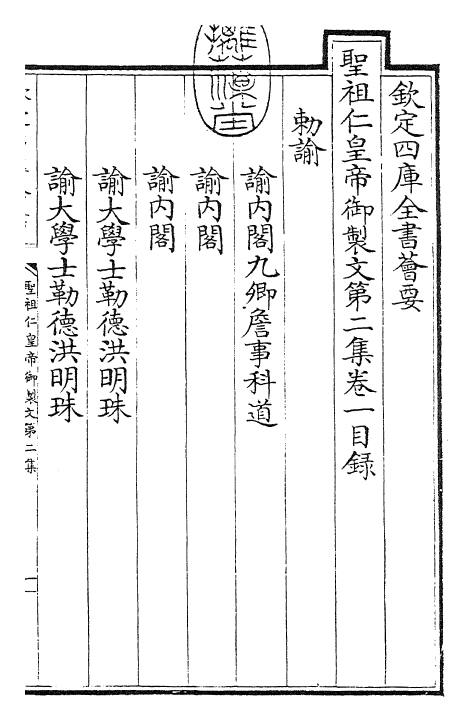 欽定四庫全書薈要
聖祖仁皇帝御製文第二集卷一目錄
勅諭
諭內閣九卿詹事科道
諭內閣
諭內閣
諭大學士勒德洪明珠
諭大學士勒德洪明珠
聖祖仁皇帝御製文第二集
一